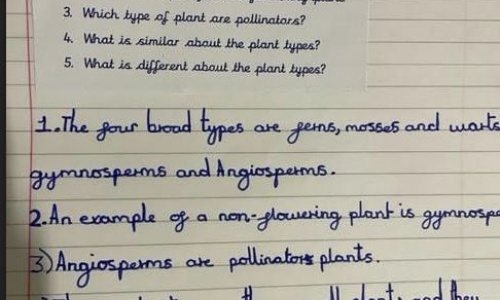 3. Which type of plant are pollinators?
4. What is similar about the plant types?
5. What is different about the plant types?
1. The four broad types are ferns, mosses and warts
gymnosperms and Angiosperms.
2. An example of a non-flowering plant is gymnospe
3) Angiosperms are pollinators plants.
plants and they